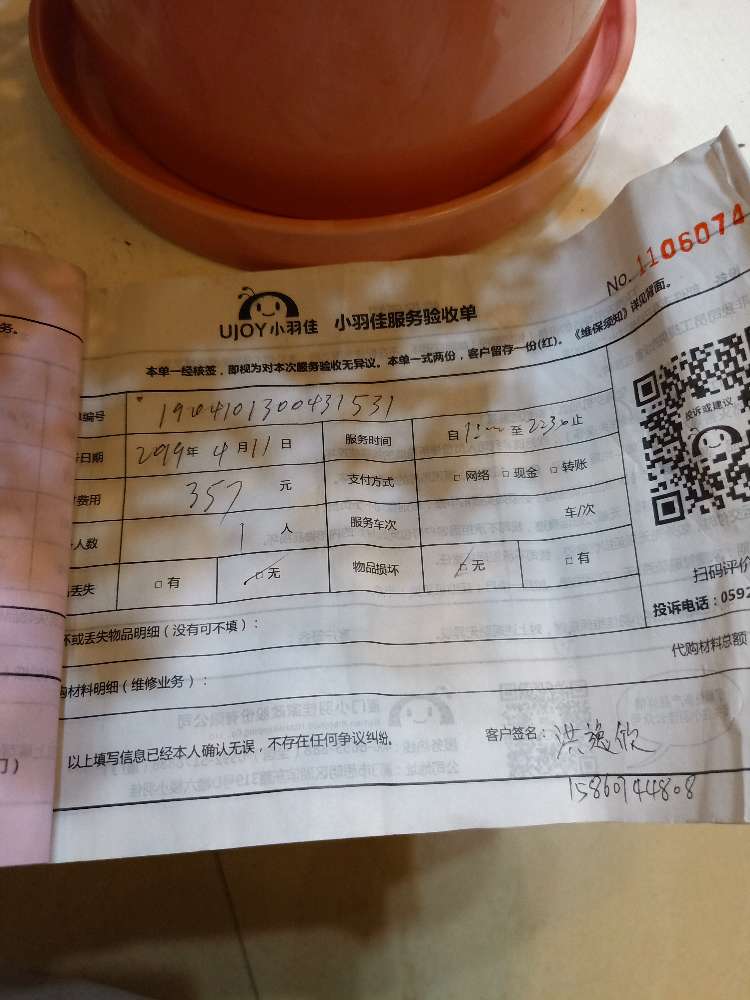 No. 1106074
UJOY小羽佳 小羽佳服务验收单
本单一经核签，即视为对本次服务验收无异议。本单一式两份，客户留存一份(红)。《维保须知》详见背面。
务。
编号 1904101300431531
日期 2099年4月11日 服务时间 自 至2230止
费用 357 元 支付方式 □网络 □现金 □转账
人数 1 人 服务车次 车/次
丢失 □有 □无 物品损坏 □无 □有
投诉或建议
扫码评价
投诉电话：0592
坏或丢失物品明细（没有可不填）：
代购材料总额
购材料明细（维修业务）：
以上填写信息已经本人确认无误，不存在任何争议纠纷。 客户签名：洪逸欣
15860744808